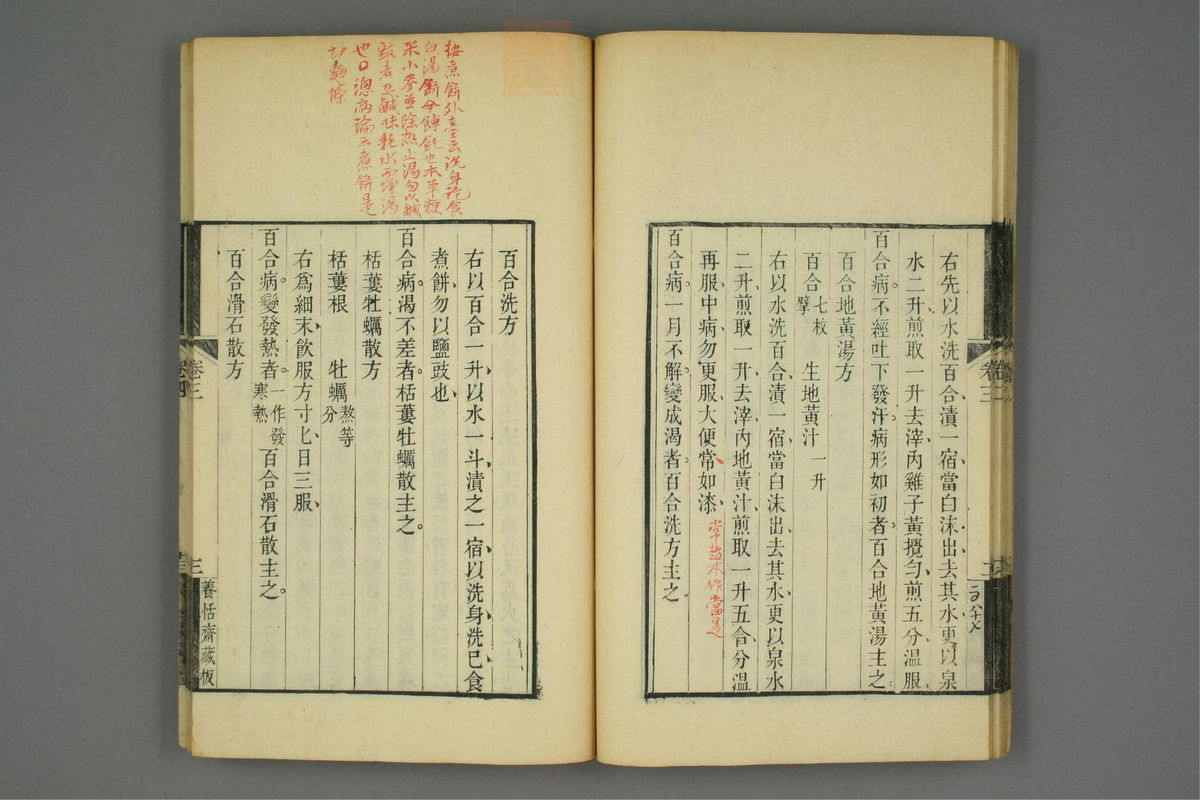 右先以水洗百合漬一宿當白沫出去其水更以泉
水二升煎取一升去滓內雞子黃攪勻煎五分溫服
百合病不經吐下發汗病形如初者百合地黃湯主之
百合地黃湯方
百合七枚擘 生地黃汁一升
右以水洗百合漬一宿當白沫出去其水更以泉水
二升煎取一升去滓內地黃汁煎取一升五合分溫
再服中病勿更服大便常如漆
常趙本作當是
百合病一月不解變成渴者百合洗方主之
按煮餅外臺云洗身訖食
白湯餅今餺飥也本草粳
米小麥並除熱止渴勿以鹹
豉者恐鹹味耗水而增渴
也口總病論云煮餅是
切麵條
百合洗方
右以百合一升以水一斗漬之一宿以洗身洗已食
煮餅勿以鹽豉也
百合病渴不差者栝蔞牡蠣散主之
栝蔞牡蠣散方
栝蔞根 牡蠣熬等分
右為細末飲服方寸匕日三服
百合病變發熱者一作發寒熱百合滑石散主之
百合滑石散方
卷三
三
養恬齋藏板